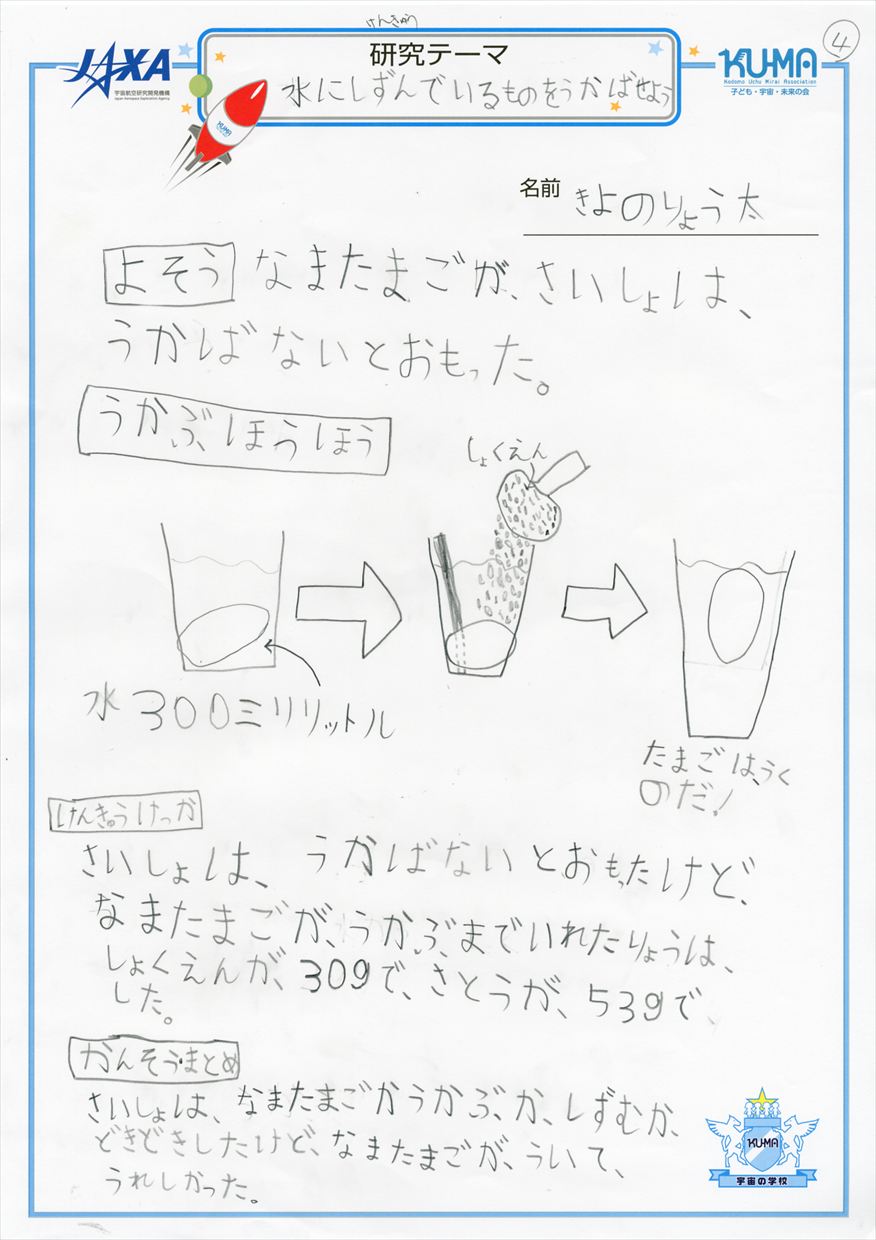 ④
けんきゅう
JAXA
宇宙航空研究開発機構
Japan Aerospace Exploration Agency
研究テーマ
水にしずんでいるものをうかばせよう
KU-MA
Kodomo Uchu Mirai Association
子ども・宇宙・未来の会
KU-MA
名前 きよのりょう太
よそう なまたまごが、さいしょは、
うかばないとおもった。
うかぶほうほう
しょくえん
水300ミリリットル
たまごは、うく
のだ!
けんきゅうけっか
さいしょは、うかばないとおもったけど、
なまたまごが、うかぶまでいれたりょうは、
しょくえんが、30gで、さとうが、53gで、
した。
かんそう・まとめ
さいしょは、なまたまごかうかぶ、か、しずむか、
どきどきしたけど、なまたまごが、ういて、
うれしかった。
KU-MA
宇宙の学校